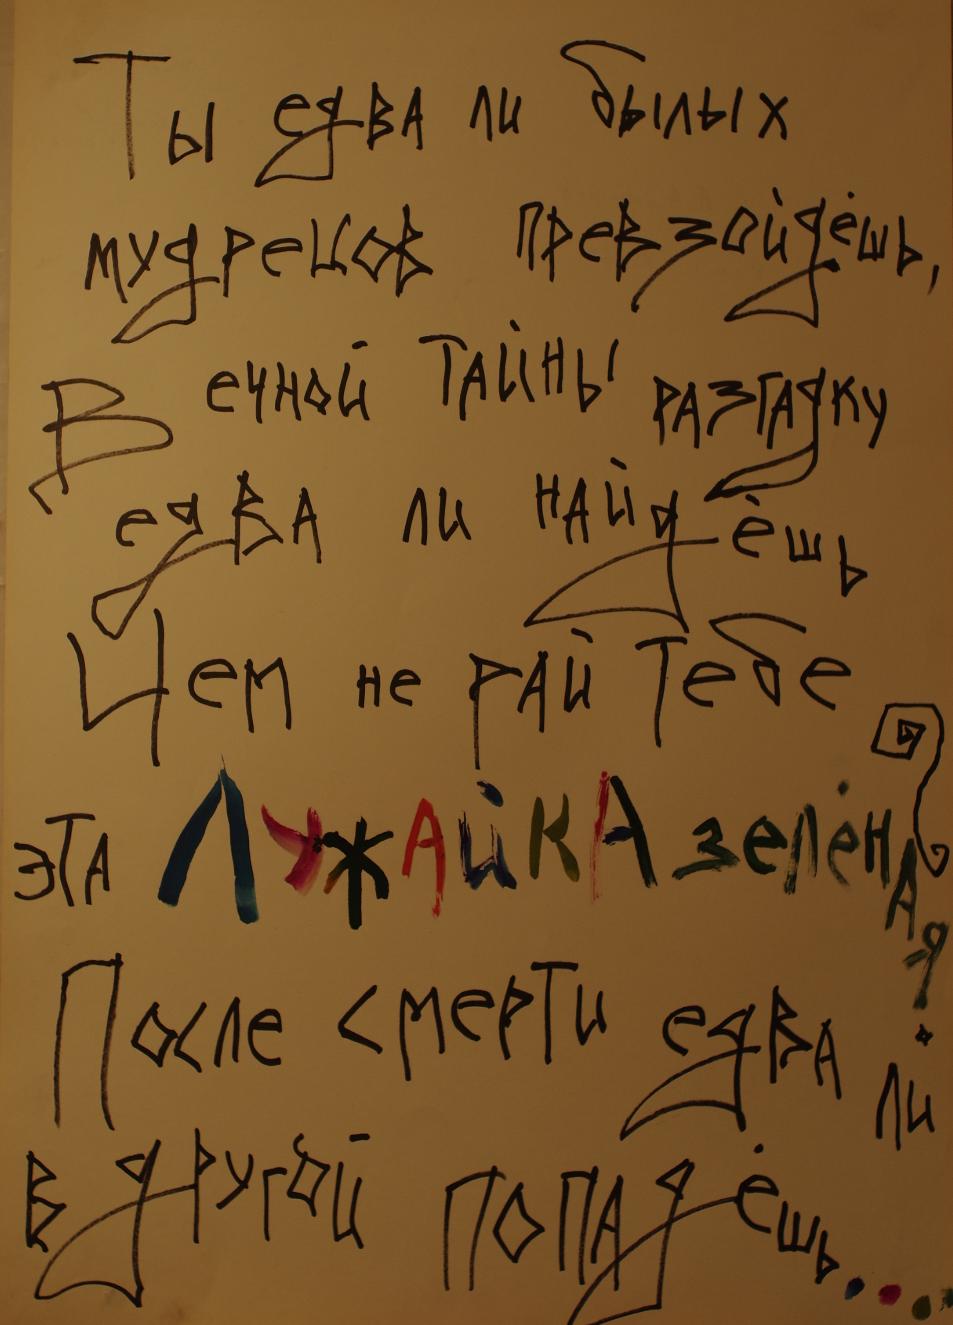 Ты едва ли былых
мудрецов превзойдёшь,
Вечной тайны разгадку
едва ли найдёшь
Чем не рай тебе
эта Лужайка зелёная?
После смерти едва ли
в другой попадёшь....